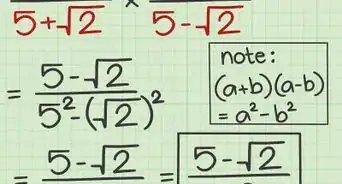 5+√2 × 5-√2
= 5-√2
5²-(√2)²
note:
(a+b)(a-b)
= a²-b²
= 5-√2 = 5-√2